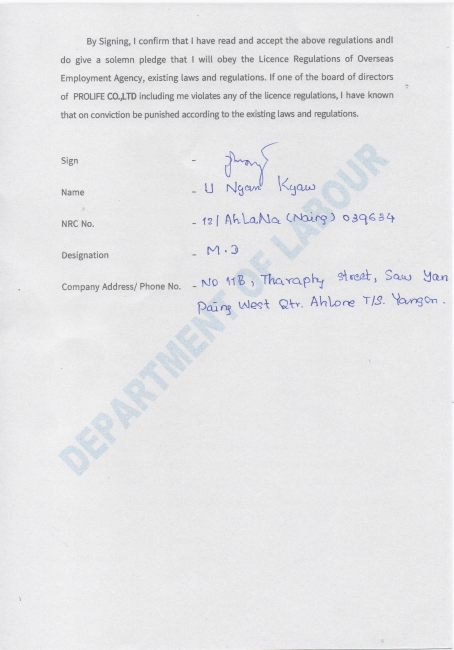 By Signing, I confirm that I have read and accept the above regulations andI
do give a solemn pledge that I will obey the Licence Regulations of Overseas
Employment Agency, existing laws and regulations. If one of the board of directors
of PROLIFE CO.,LTD including me violates any of the licence regulations, I have known
that on conviction be punished according to the existing laws and regulations.
Sign -
Name - U Ngan Kyaw
NRC No. - 12/ AhLaNa (Naing) 039634
Designation - M.D
Company Address/ Phone No. - NO 11B, Tharaphy street, Saw Yan
Paing West Qtr. Ahlone T/S. Yangon.
DEPARTMENT OF LABOUR